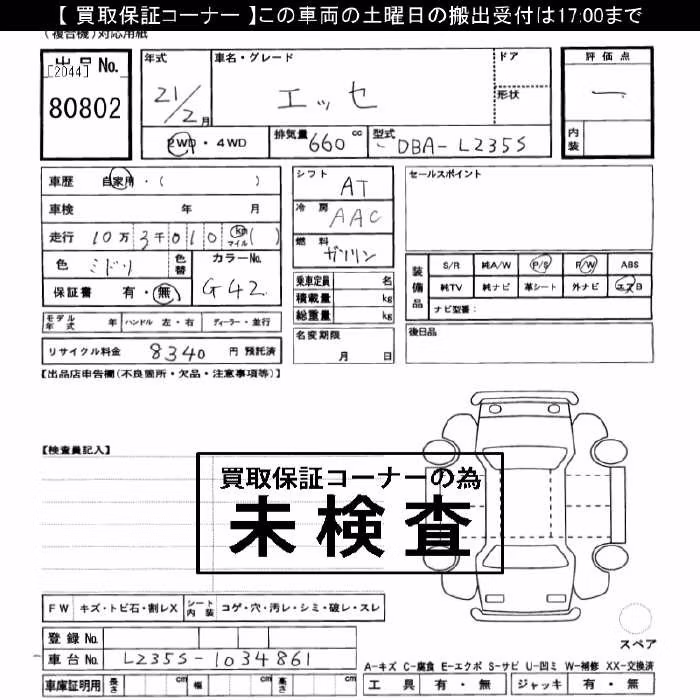 【 買取保証コーナー 】この車両の土曜日の搬出受付は17:00まで
(複合機)対応用紙
出品 No.
[2044]
80802
年式
21/2月
車名・グレード
エッセ
ドア
形状
評価点
内装
2WD・4WD
排気量 660 cc
型式 DBA-L235S
車歴 自家用・( )
車検 年 月
走行 10万3千010 km マイル ( )
色 ミドリ
色替
カラーNo. G42
保証書 有・無
モデル年式 年 ハンドル 左・右 ディーラー・並行
リサイクル料金 8340 円 預託済
シフト AT
冷房 AAC
燃料 ガソリン
乗車定員 名
積載量 kg
総重量 kg
名変期限
月 日
セールスポイント
装備品
S/R 純A/W P/S P/W ABS
純TV 純ナビ 革シート 外ナビ エアB
ナビ型番：
後日品
【出品店申告欄(不良箇所・欠品・注意事項等)】
【検査員記入】
買取保証コーナーの為
未検査
FW キズ・トビ石・割レX シート内装 コゲ・穴・汚レ・シミ・破レ・スレ
登録 No.
車台 No. L235S-1034861
車庫証明用 長さ cm 幅 cm 高さ cm
スペア
A-キズ C-腐食 E-エクボ S-サビ U-凹ミ W-補修 XX-交換済
工具 有・無 ジャッキ 有・無